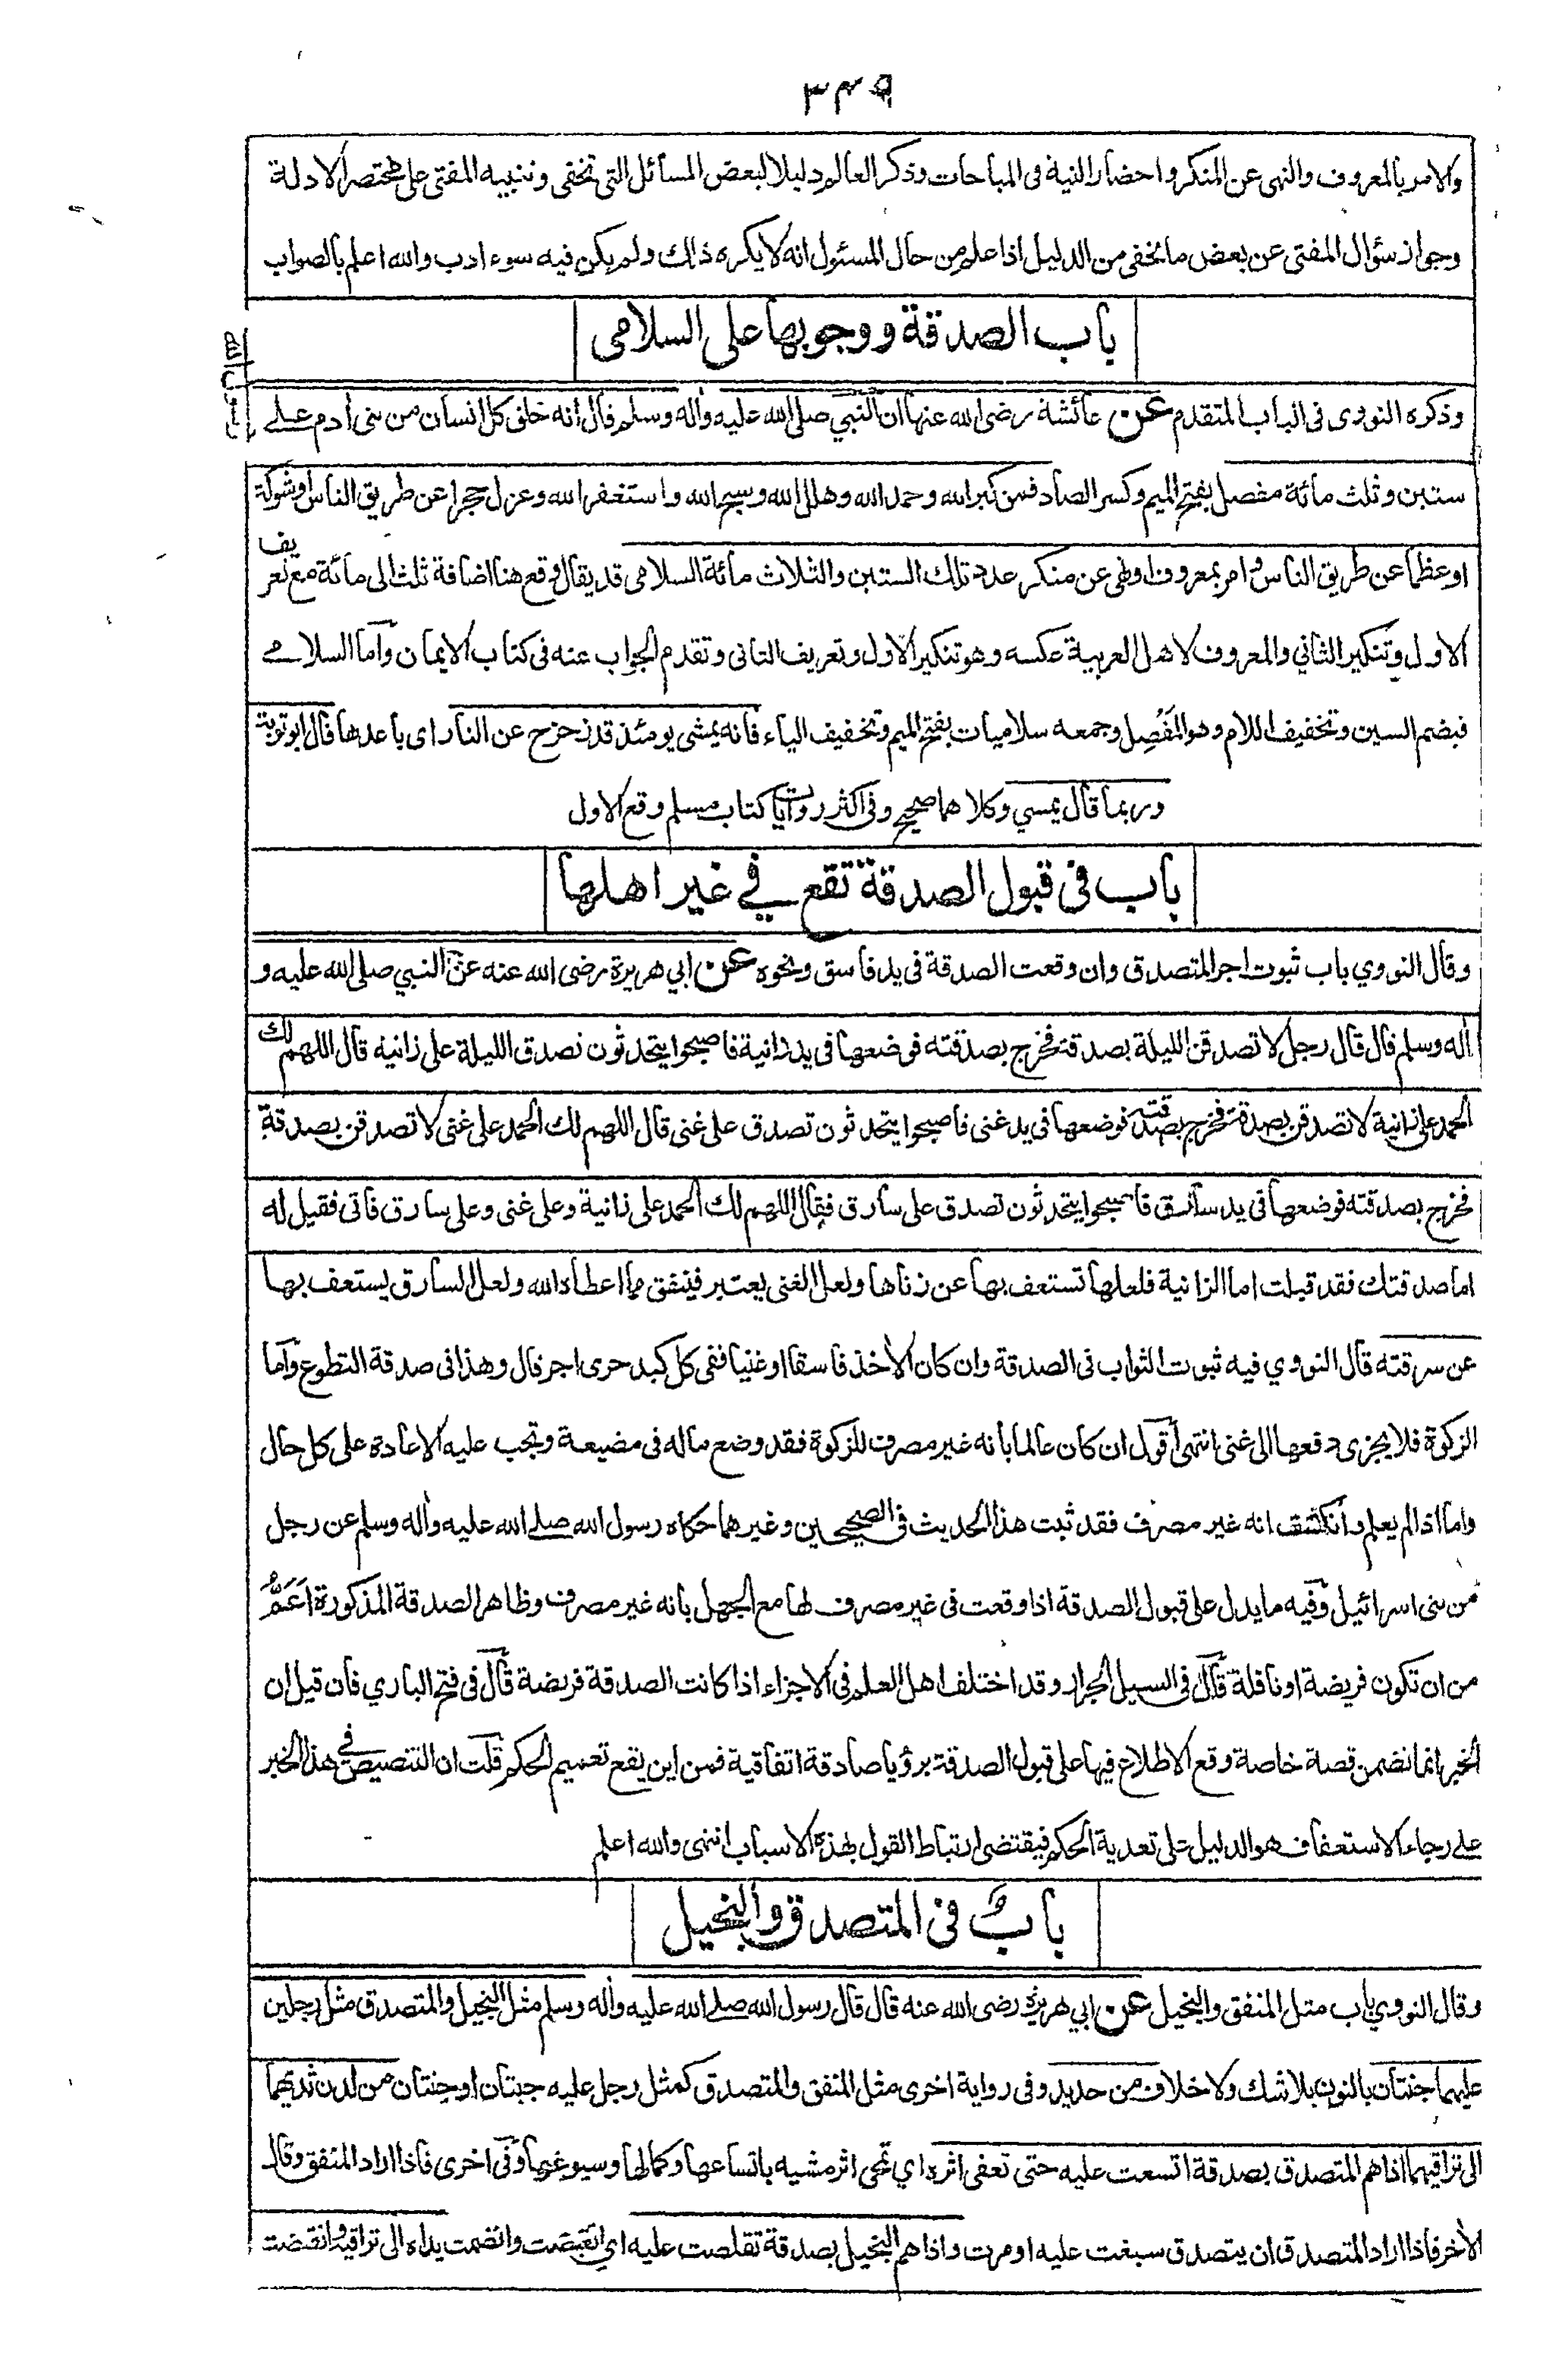 ٣٤٩
والامر بالمعروف والنهى عن المنكر واحضار النية فى المباحات وذكر العالم دليلا لبعض المسائل التى تخفى وتنبيه المفتى على مختصر الادلة
وجواز سؤال المفتى عن بعض ما يخفى من الدليل اذا علم من حال المسئول انه لا يكره ذالك ولم يكن فيه سوء ادب والله اعلم بالصواب
باب الصدقة ووجوبها على السلامى
وذكره النووى فى الباب المتقدم عن عائشة رضى الله عنها ان النبي صلى الله عليه وأله وسلم قال انه خلق كل انسان من بنى أدم على
ستين وثلث مائة مفصل بفتح الميم وكسر الصاد فمن كبر الله وحمد الله وهلل الله وسبح الله واستغفر الله وعزل حجرا عن طريق الناس او شوكة
او عظما عن طريق الناس وامر بمعروف او نهى عن منكر عدد تلك الستين والثلاث مائة السلامى قد يقال وقع هنا اضافة ثلث الى مائة مع تعريف
الاول وتنكير الثاني والمعروف لاهل العربية عكسه وهو تنكير الاول وتعريف الثانى وتقدم الجواب عنه فى كتاب الايمان وأما السلامى
فبضم السين وتخفيف اللام وهو المَفْصِل وجمعه سلاميات بفتح الميم وتخفيف الياء فانه يمشى يومئذ قد زحزح عن النار اى باعدها قال ابو توبة
وربما قال يمسي وكلاهما صحيح وفى اكثر روايات كتاب مسلم وقع الاول
باب فى قبول الصدقة تقع في غير اهلها
وقال النووي باب ثبوت اجر المتصدق وان وقعت الصدقة فى يد فاسق ونحوه عن ابي هريرة رضى الله عنه عن النبي صلى الله عليه و
أله وسلم قال قال رجل لا تصدقن الليلة بصدقة فخرج بصدقته فوضعها فى يد زانية فاصبحوا يتحدثون تصدق الليلة على زانية قال اللهم لك
الحمد على زانية لا تصدقن بصدقة فخرج بصدقته فوضعها فى يد غنى فاصبحوا يتحدثون تصدق على غنى قال اللهم لك الحمد على غنى لا تصدقن بصدقة
فخرج بصدقته فوضعها فى يد سارق فاصبحوا يتحدثون تصدق على سارق فقال اللهم لك الحمد على زانية وعلى غنى وعلى سارق فاتى فقيل له
اما صدقتك فقد قبلت اما الزانية فلعلها تستعف بها عن زناها ولعل الغنى يعتبر فينفق مما اعطاه الله ولعل السارق يستعف بها
عن سرقته قال النووي فيه ثبوت الثواب فى الصدقة وان كان الأخذ فاسقا او غنيا ففى كل كبد حرى اجر قال وهذا فى صدقة التطوع وأما
الزكوة فلا يجزى دفعها الى غنى انتهى أقول ان كان عالما بانه غير مصرف للزكوة فقد وضع ماله فى مضيعة وتجب عليه الاعادة على كل حال
واما اذا لم يعلم وانكشف انه غير مصرف فقد ثبت هذا الحديث فى الصحيحين وغيرهما حكاه رسول الله صلى الله عليه وأله وسلم عن رجل
من بنى اسرائيل وفيه ما يدل على قبول الصدقة اذا وقعت فى غير مصرف لها مع الجهل بانه غير مصرف وظاهر الصدقة المذكورة اَعَمُّ
من ان تكون فريضة او نافلة قال فى السيل الجرار وقد اختلف اهل العلم فى الاجزاء اذا كانت الصدقة فريضة قال فى فتح الباري فان قيل ان
الخبر انما تضمن قصة خاصة وقع الاطلاع فيها على قبول الصدقة برؤيا صادقة اتفاقية فمن اين يقع تعميم الحكم قلت ان التنصيص في هذا الخبر
على رجاء الاستعفاف هو الدليل على تعدية الحكم فيقتضى ارتباط القول بهذه الاسباب انتهى والله اعلم
بابٌ فى المتصدق والبخيل
وقال النووي باب مثل المنفق والبخيل عن ابي هريرة رضى الله عنه قال قال رسول الله صلى الله عليه وأله وسلم مثل البخيل والمتصدق مثل رجلين
عليهما جنتان بالنون بلا شك ولا خلاف من حديد وفى رواية اخرى مثل المنفق والمتصدق كمثل رجل عليه جبتان او جنتان من لدن ثديهما
الى تراقيهما اذا هم المتصدق بصدقة اتسعت عليه حتى تعفى اثره اي تمحى اثر مشيه باتساعها وكمالها وسبوغها وفى اخرى فاذا اراد المنفق وقال
الأخر فاذا اراد المتصدق ان يتصدق سبغت عليه او مرت واذا هم البخيل بصدقة تقلصت عليه اي انقبضت وانضمت يداه الى تراقيه وانقبضت
رسول الله